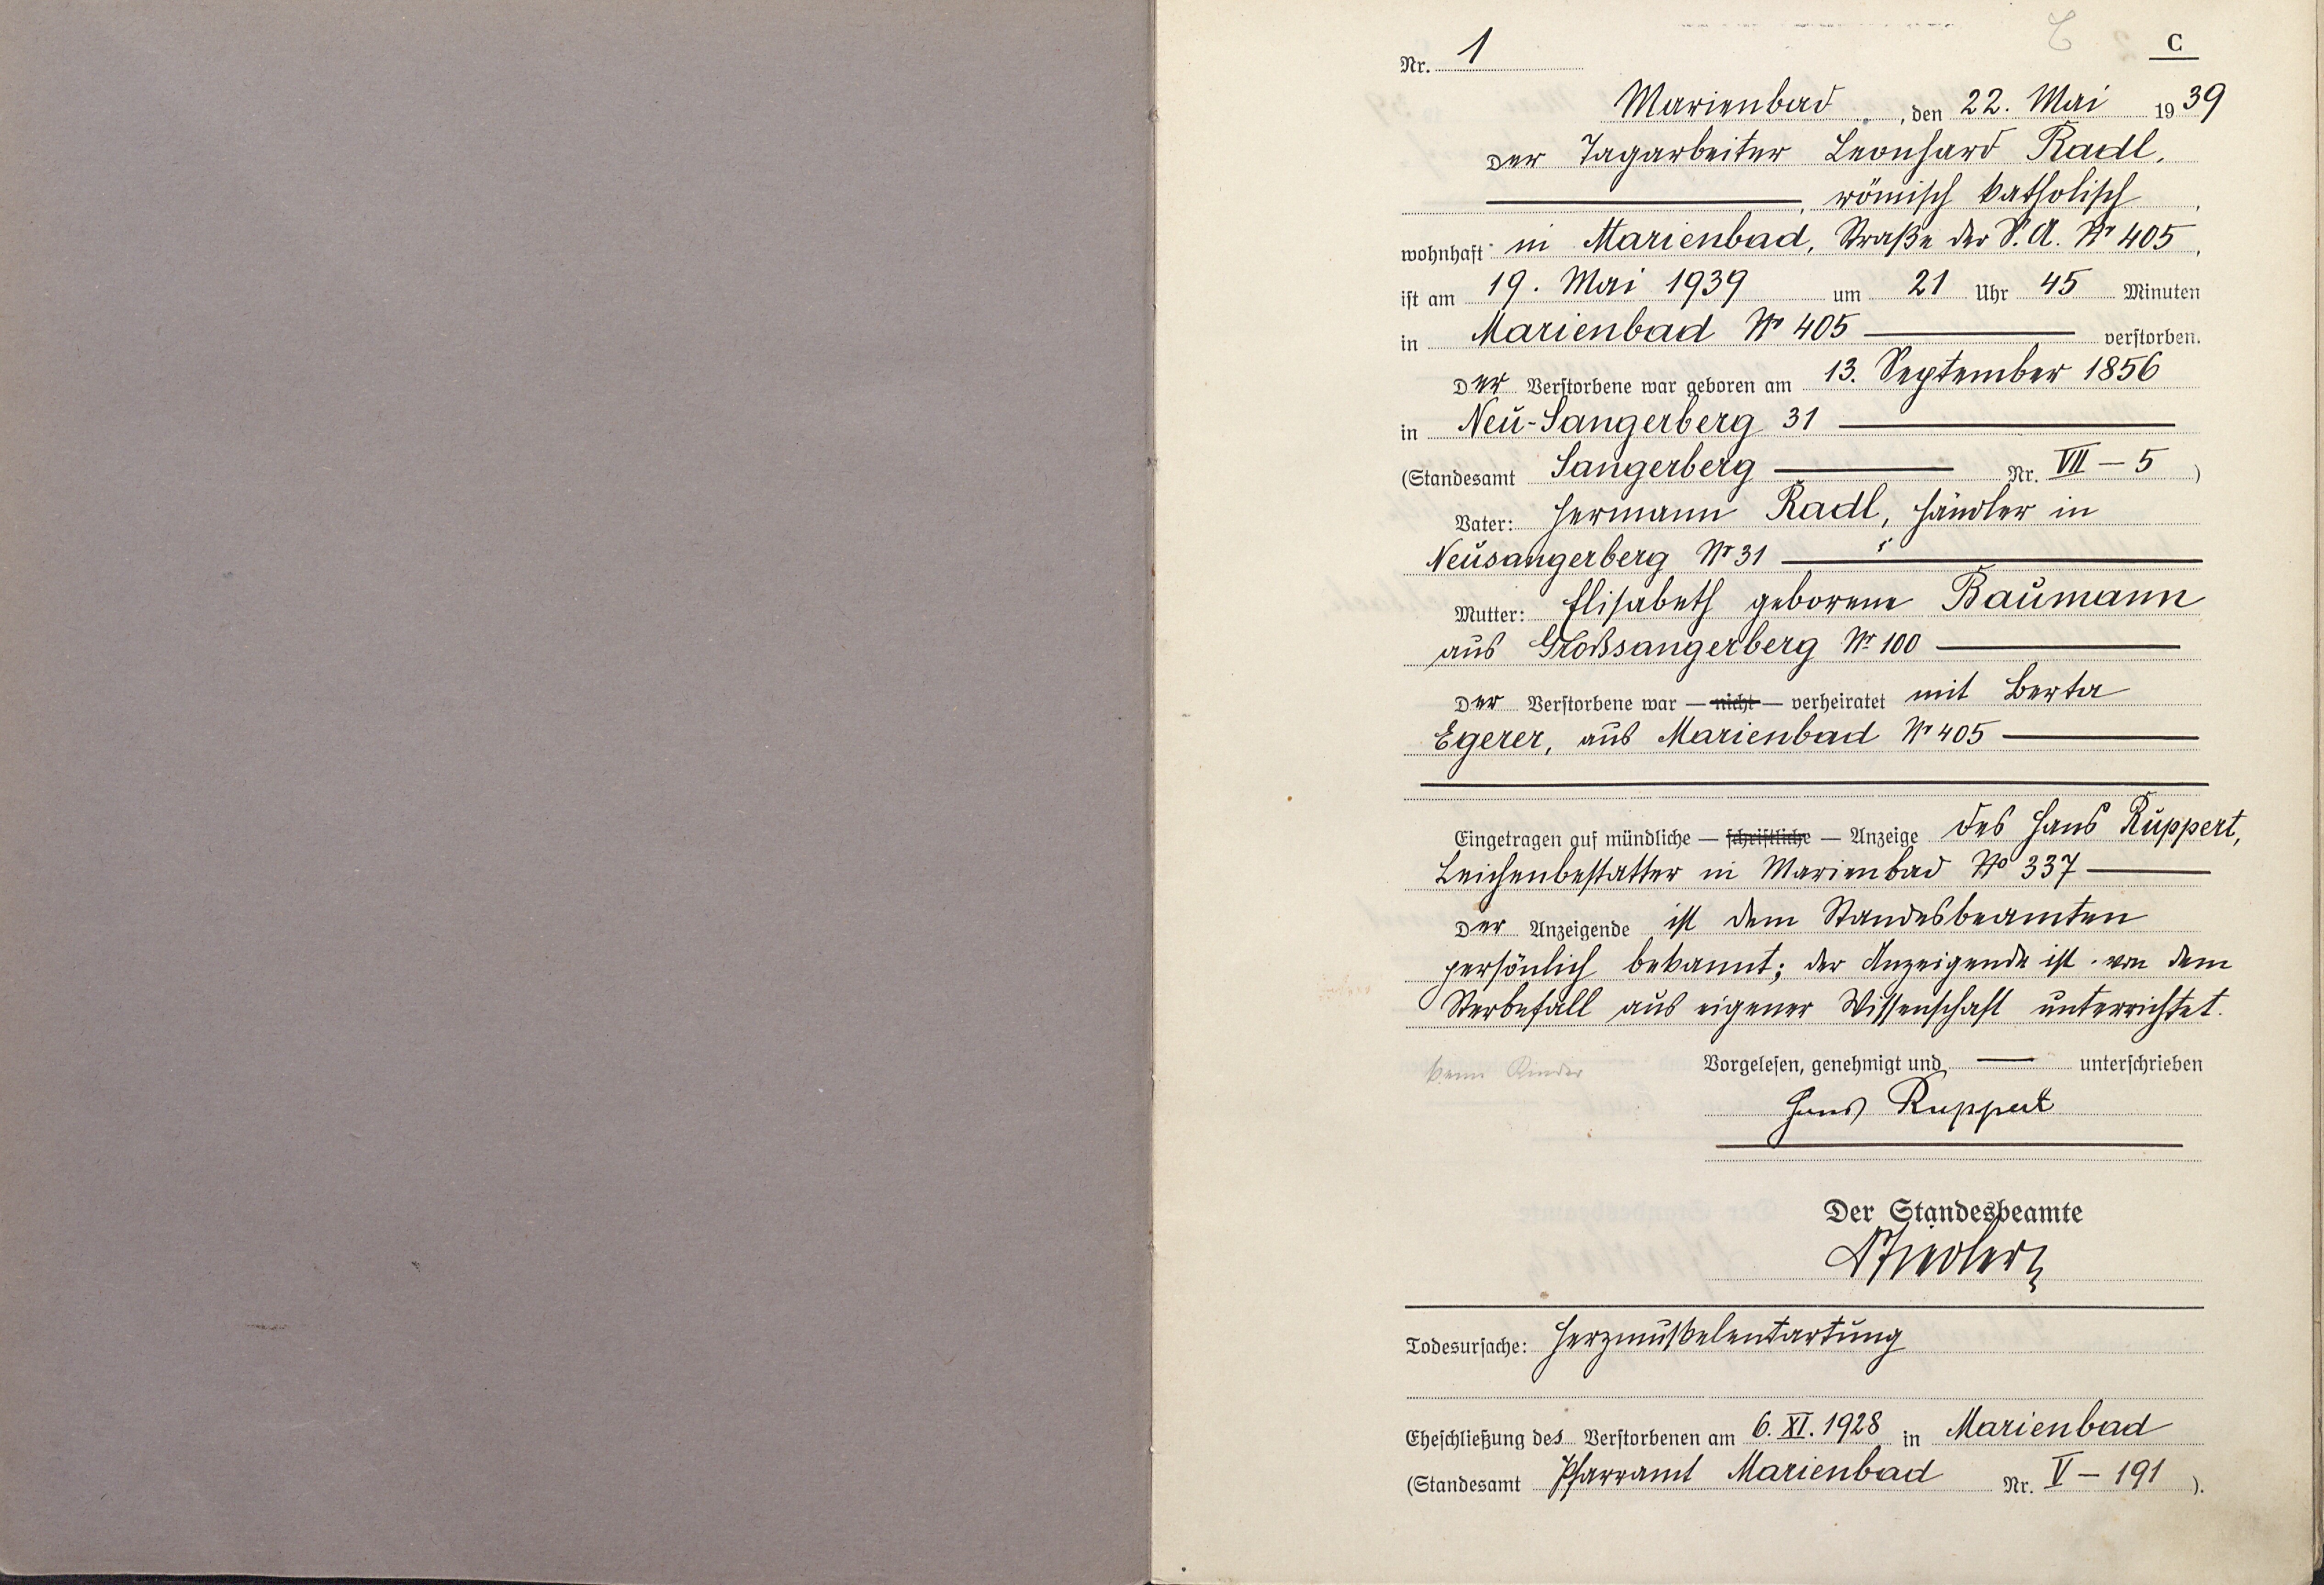 C
Nr. 1
Marienbad, den 22. Mai 1939
Der Tagarbeiter Leonhard Radl,
, römisch katholisch,
wohnhaft in Marienbad, Straße der S.A. Nr 405,
ist am 19. Mai 1939 um 21 Uhr 45 Minuten
in Marienbad Nr 405 verstorben.
Der Verstorbene war geboren am 13. September 1856
in Neu-Sangerberg 31
(Standesamt Sangerberg Nr. VII – 5)
Vater: Hermann Radl, Händler in
Neusangerberg Nr 31
Mutter: Elisabeth geborene Baumann
aus Großsangerberg Nr 100
Der Verstorbene war — nicht — verheiratet mit Berta
Egerer, aus Marienbad Nr 405
Eingetragen auf mündliche — schriftliche — Anzeige des Hans Ruppert,
Leichenbestatter in Marienbad No 337
Der Anzeigende ist dem Standesbeamten
persönlich bekannt; der Anzeigende ist von dem
Sterbefall aus eigener Wissenschaft unterrichtet.
Vorgelesen, genehmigt und — unterschrieben
keine Kinder
Hans Ruppert
Der Standesbeamte
Todesursache: Herzmuskelentartung
Eheschließung des Verstorbenen am 6. XI. 1928 in Marienbad
(Standesamt Pfarramt Marienbad Nr. V – 191).